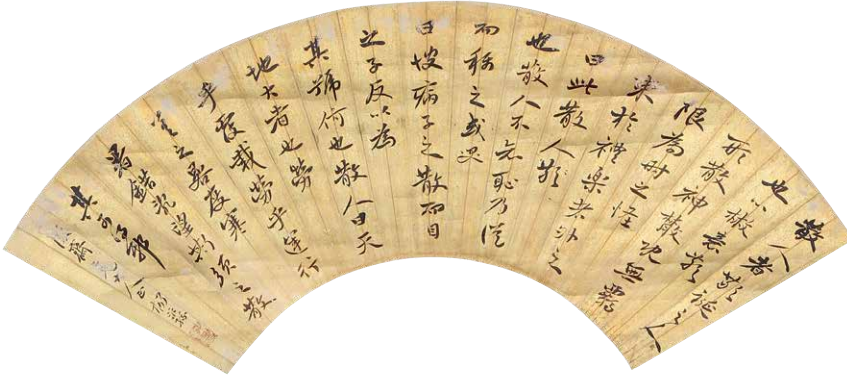 散人者散誕之人
也心散意散
形散神散既無羈
限為時之怪
束於禮樂者外之
曰此散人
也散人不知恥乃從
而稱之或笑
曰彼病子之散而目
之子反以為
其號何也散人曰天
地大者也勞
乎覆載勞乎運行
差之晷度寒
暑錯亂望斯須之散
其可得耶